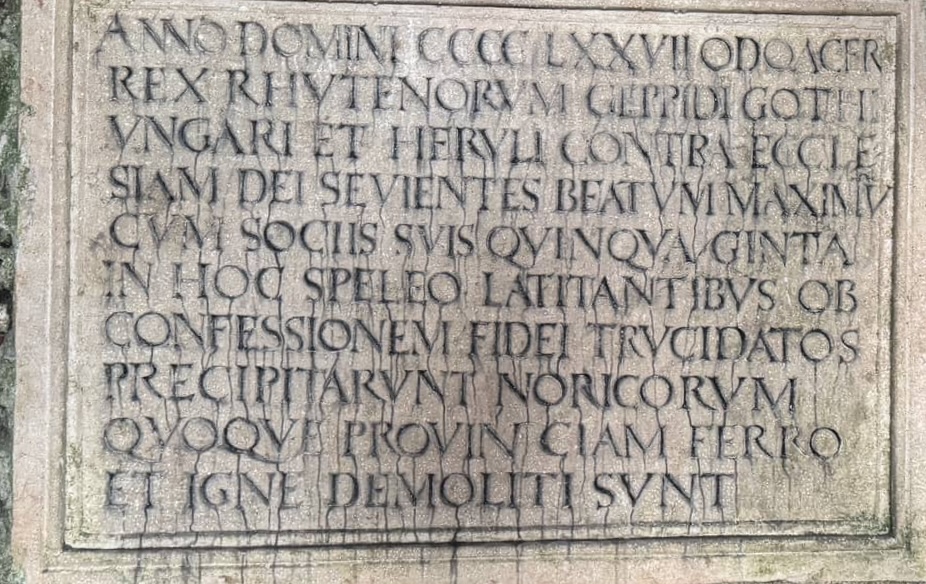 ANNO DOMINI CCCC LXXVII ODOACER
REX RHVTENORVM GEPPIDI GOTHI
VNGARI ET HERVLI CONTRA ECCLE
SIAM DEI SEVIENTES BEATVM MAXIMV
CVM SOCIIS SVIS QVINQVAGINTA
IN HOC SPELEO LATITANTIBVS OB
CONFESSIONEM FIDEI TRVCIDATOS
PRECIPITARVNT NORICORVM
QVOQVE PROVINCIAM FERRO
ET IGNE DEMOLITI SVNT